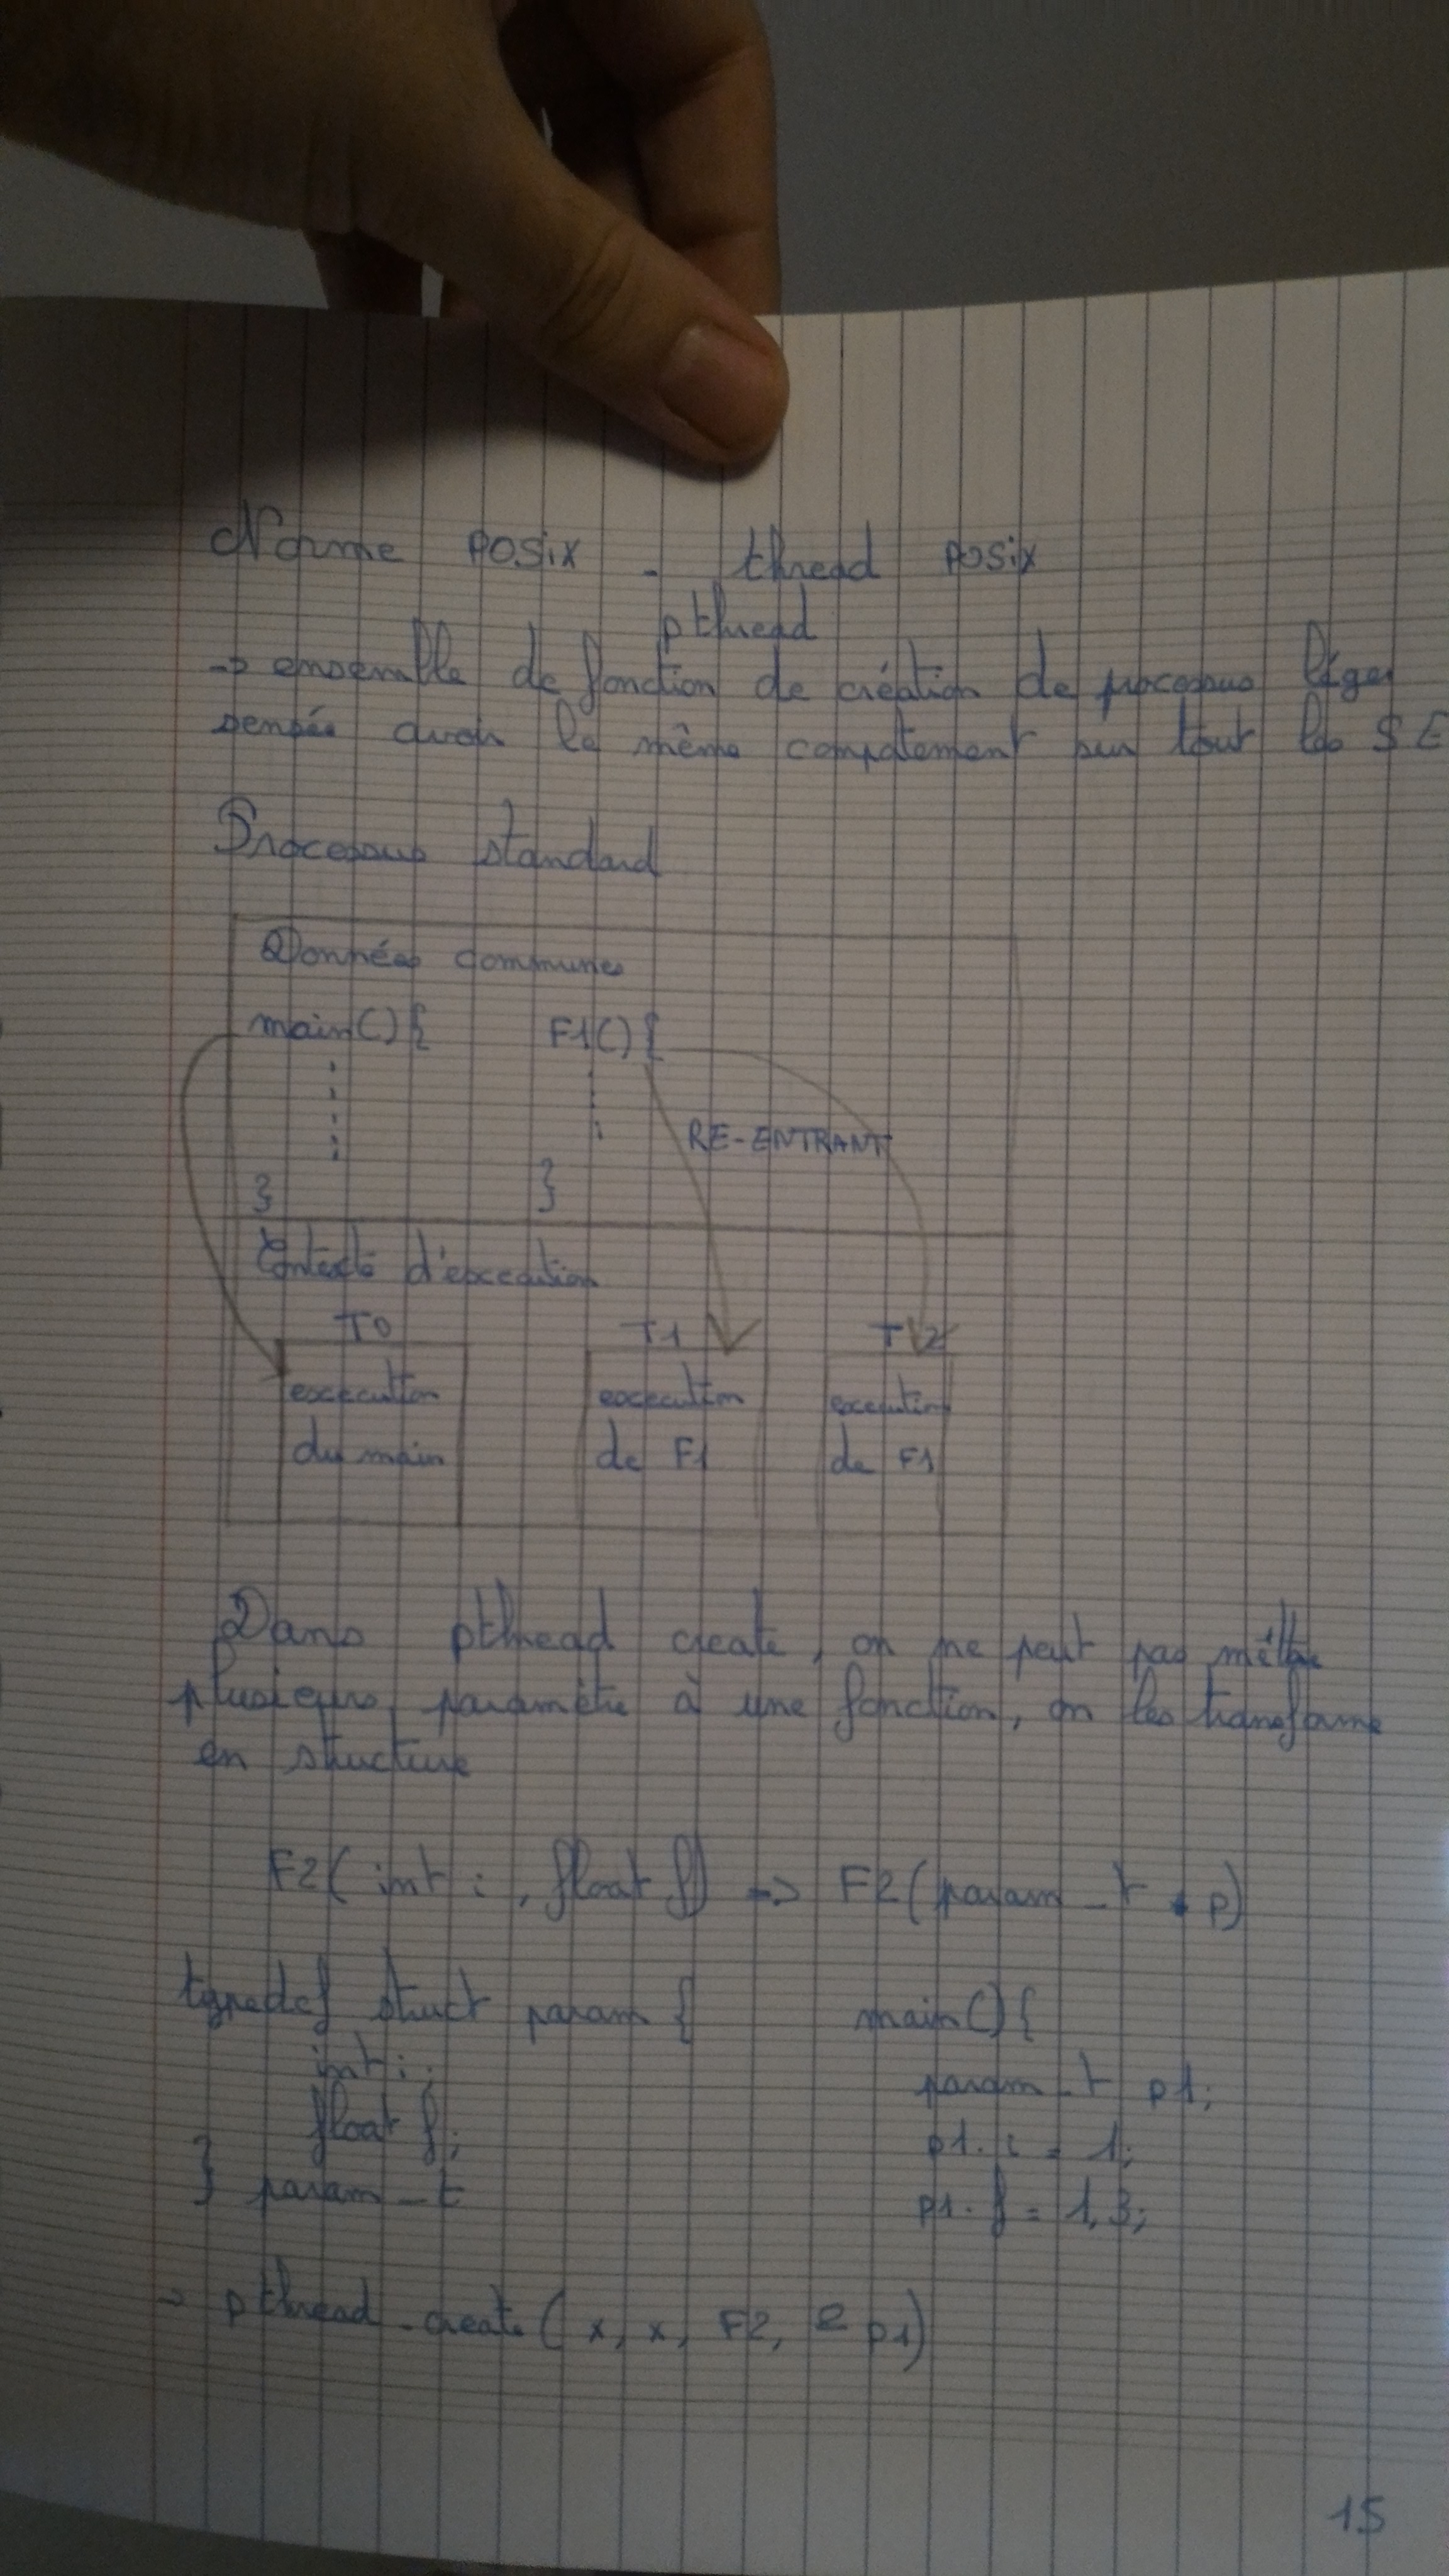 Norme POSIX - thread POSIX
pthread
-> ensemble de fonction de création de processus léger
sensée avoir le même comportement sur tout les SE
Processus standard
Données communes
main() { F1() {
RE-ENTRANT
} }
Contexte d'execution
T0 T1 T2
execution execution execution
du main de F1 de F1
Dans pthread create, on ne peut pas mettre
plusieurs paramètre à une fonction, on les transforme
en structure
F2( int i, float f) -> F2(param_t * p)
typedef struct param { main() {
int i; param_t p1;
float f; p1.i = 1;
} param_t p1.f = 1,3;
-> pthread_create( x, x, F2, & p1)
15